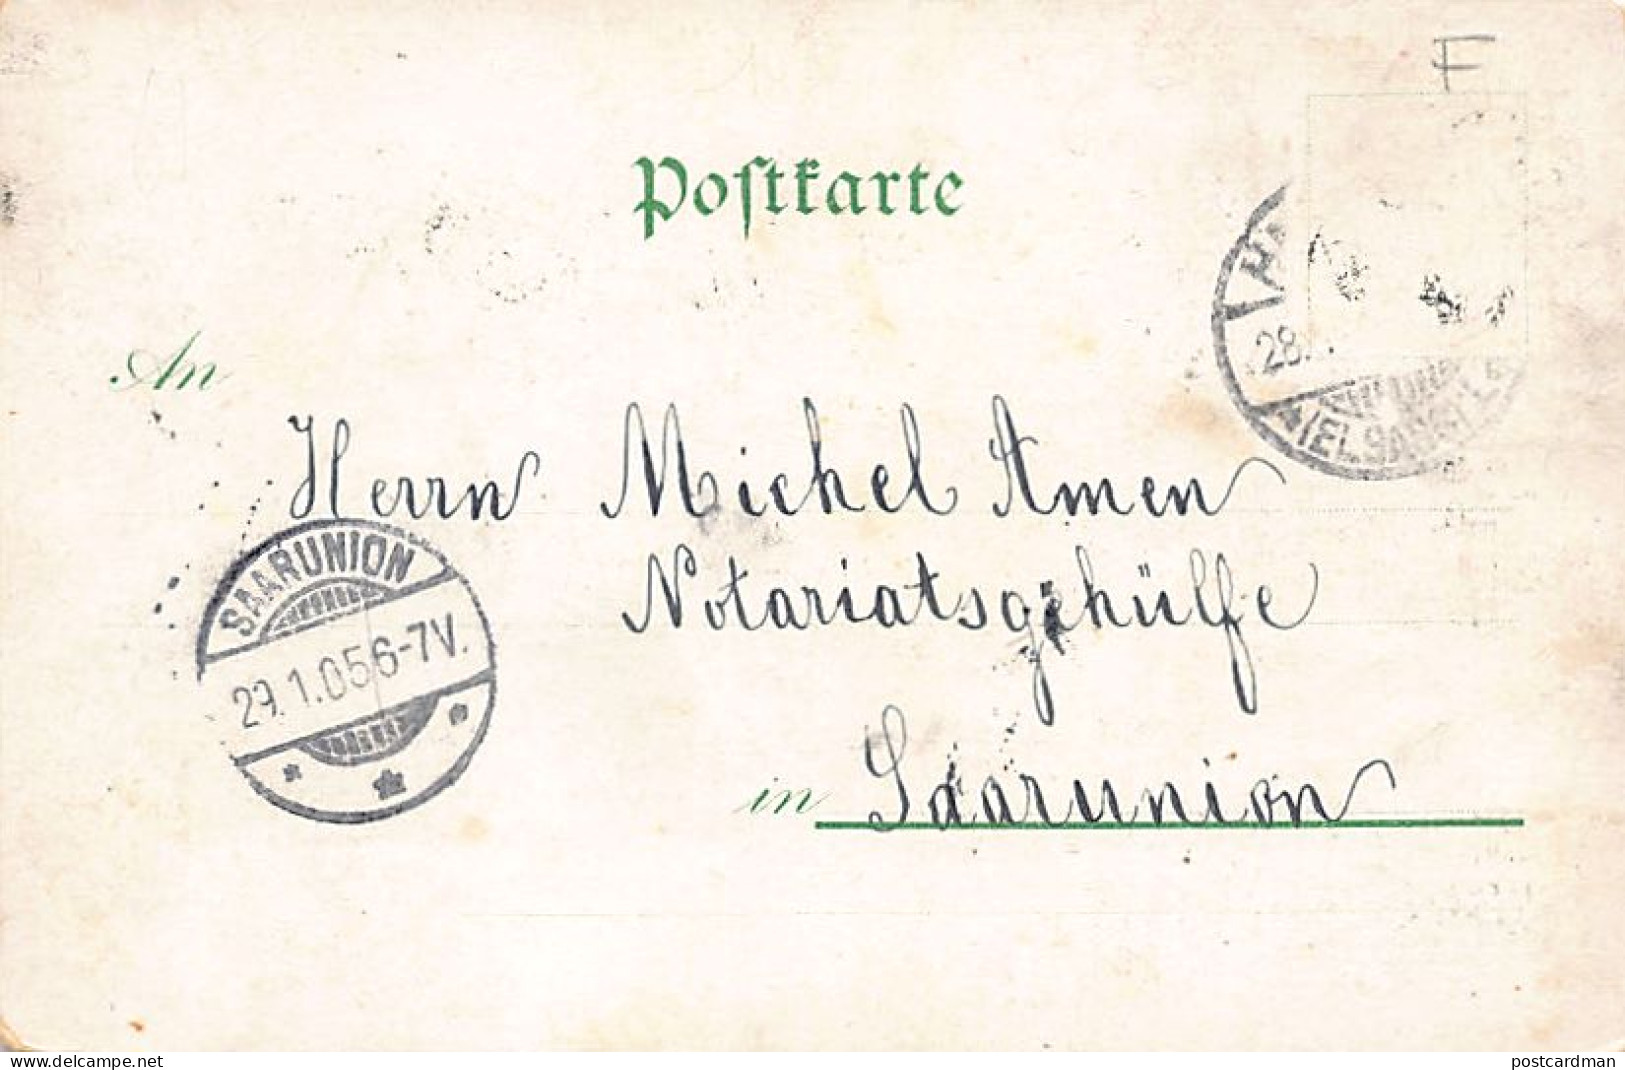 F
Postkarte
An
Herrn Michel Amen
Notariatsgehülfe
in Saarunion
SAARUNION
29.1.05 6-7V.
28.
(ELSASS)
delcampe.net
postcardman